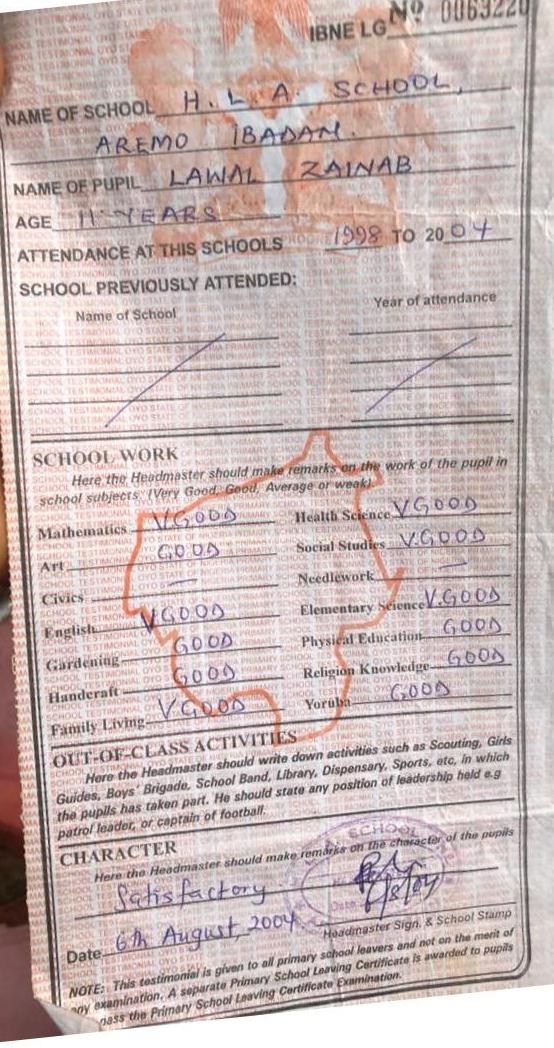 IBNE LG Nº 0063220
NAME OF SCHOOL H. L. A. SCHOOL,
AREMO IBADAN.
NAME OF PUPIL LAWAL ZAINAB
AGE 11 YEARS
ATTENDANCE AT THIS SCHOOLS 1998 TO 2004
SCHOOL PREVIOUSLY ATTENDED:
Name of School Year of attendance
SCHOOL WORK
Here the Headmaster should make remarks on the work of the pupil in
school subjects. (Very Good, Good, Average or weak).
Mathematics V.GOOD Health Science V.GOOD
Art GOOD Social Studies V.GOOD
Civics — Needlework —
English V.GOOD Elementary Science V.GOOD
Gardening GOOD Physical Education GOOD
Handcraft GOOD Religion Knowledge GOOD
Family Living V.GOOD Yoruba GOOD
OUT-OF-CLASS ACTIVITIES
Here the Headmaster should write down activities such as Scouting, Girls
Guides, Boys' Brigade, School Band, Library, Dispensary, Sports, etc, in which
the pupils has taken part. He should state any position of leadership held e.g
patrol leader, or captain of football.
CHARACTER
Here the Headmaster should make remarks on the character of the pupils
Satisfactory
6/8/04
Date 6th August, 2004 Headmaster Sign. & School Stamp
NOTE: This testimonial is given to all primary school leavers and not on the merit of
any examination. A separate Primary School Leaving Certificate is awarded to pupils
pass the Primary School Leaving Certificate Examination.